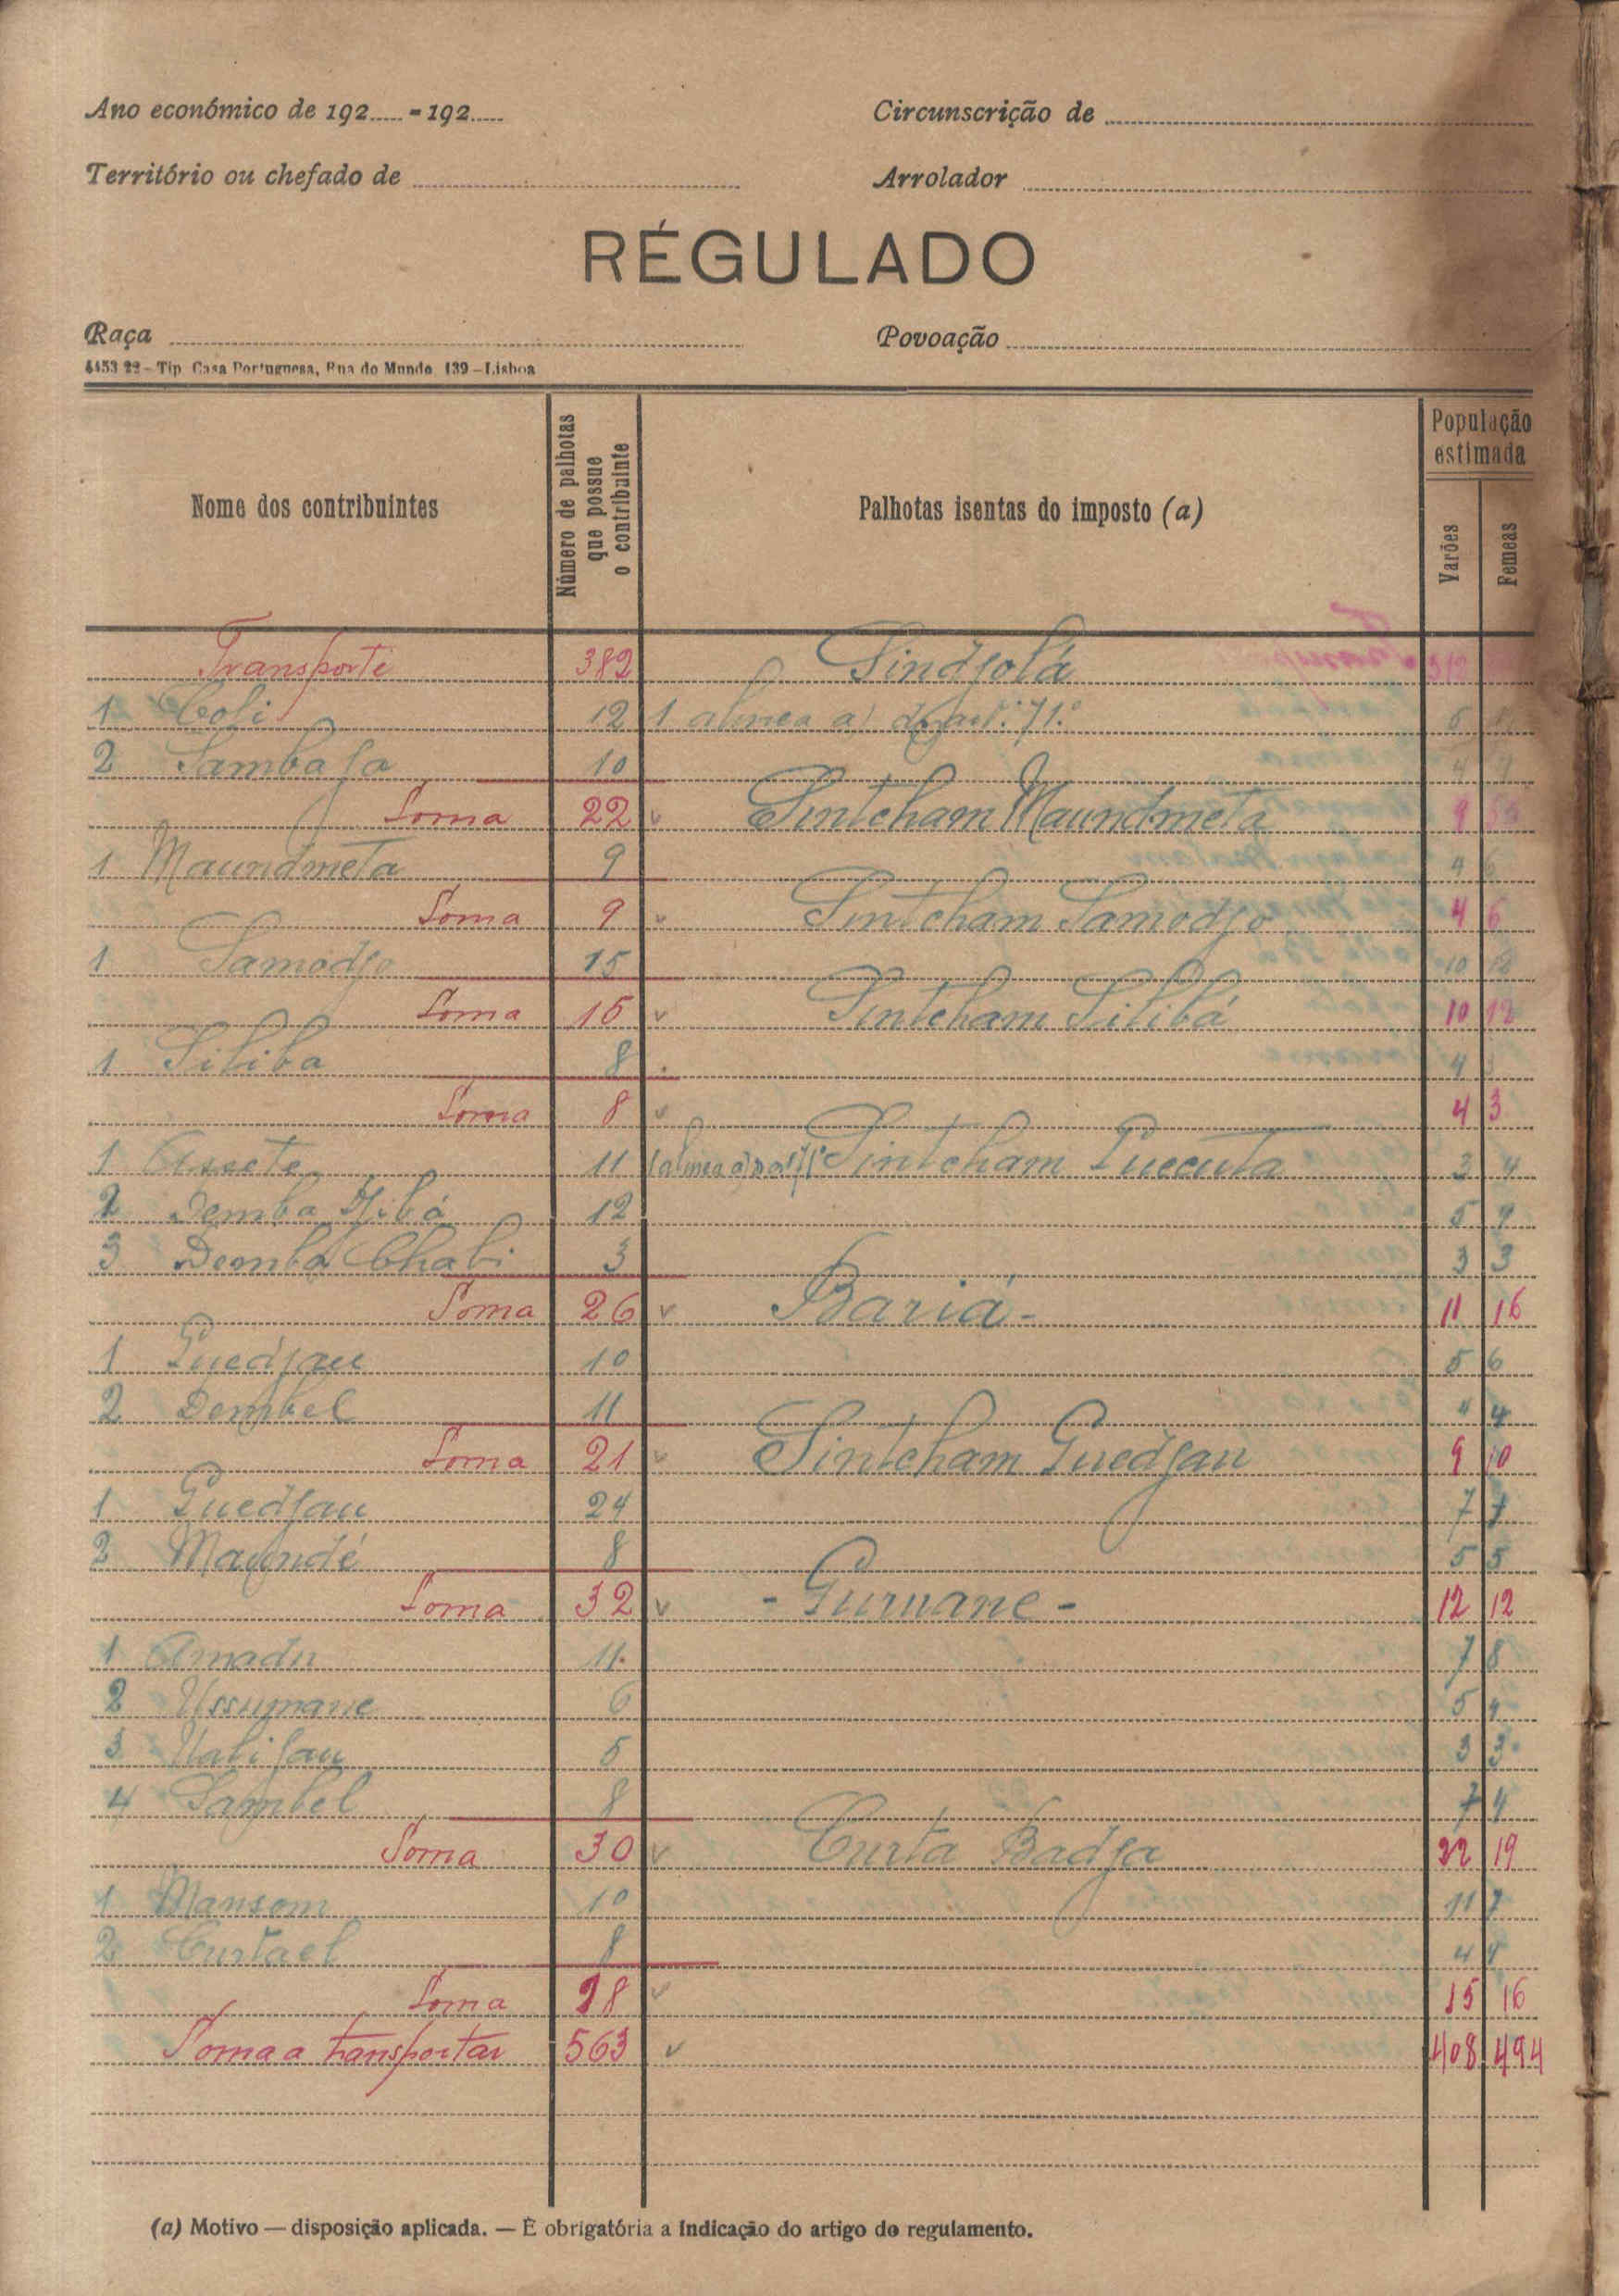 Ano económico de 192..... - 192.....
Circunscrição de
Território ou chefado de
Arrolador
RÉGULADO
Raça
Povoação
4453 22 – Tip. Casa Portuguesa, Rua do Mundo, 139 – Lisboa
Nome dos contribuintes
Número de palhotas que possue o contribuinte
Palhotas isentas do imposto (a)
População estimada
Varões
Femeas
Transporte 382 Sindjolá 312
1 Coli 12 1 alinea a) do art.º 71.º 5
2 Sambasa 10 4
Soma 22 v Sintcham Maundmeta 9
1 Maundmeta 9 4 6
Soma 9 v Sintcham Samodjo 4 6
1 Samodjo 15 10 12
Soma 15 v Sintcham Silibá 10 12
1 Siliba 8 4 3
Soma 8 v 4 3
1 11 1 alinea a) Sintcham 3
2 Demba 12 5 9
3 Demba Chabi 3 3 3
Soma 26 v Bariá - 11 16
1 Guedjau 10 5 6
2 Dembel 11 4 4
Soma 21 v Sintcham Guedjau 9 10
1 Guedjau 24 7 7
2 Maundé 8 5 5
Soma 32 v - Guruane - 12 12
1 Amadu 11. 7 8
2 Ussumane 6 5 4
3 5 3 3
4 Sambel 8 7 4
Soma 30 v Curta Badja 22 19
1 Mansom 10 11
2 Curtael 8 4
Soma 18 v 15 16
Soma a transportar 563 v 408 494
(a) Motivo — disposição aplicada. — É obrigatória a indicação do artigo do regulamento.